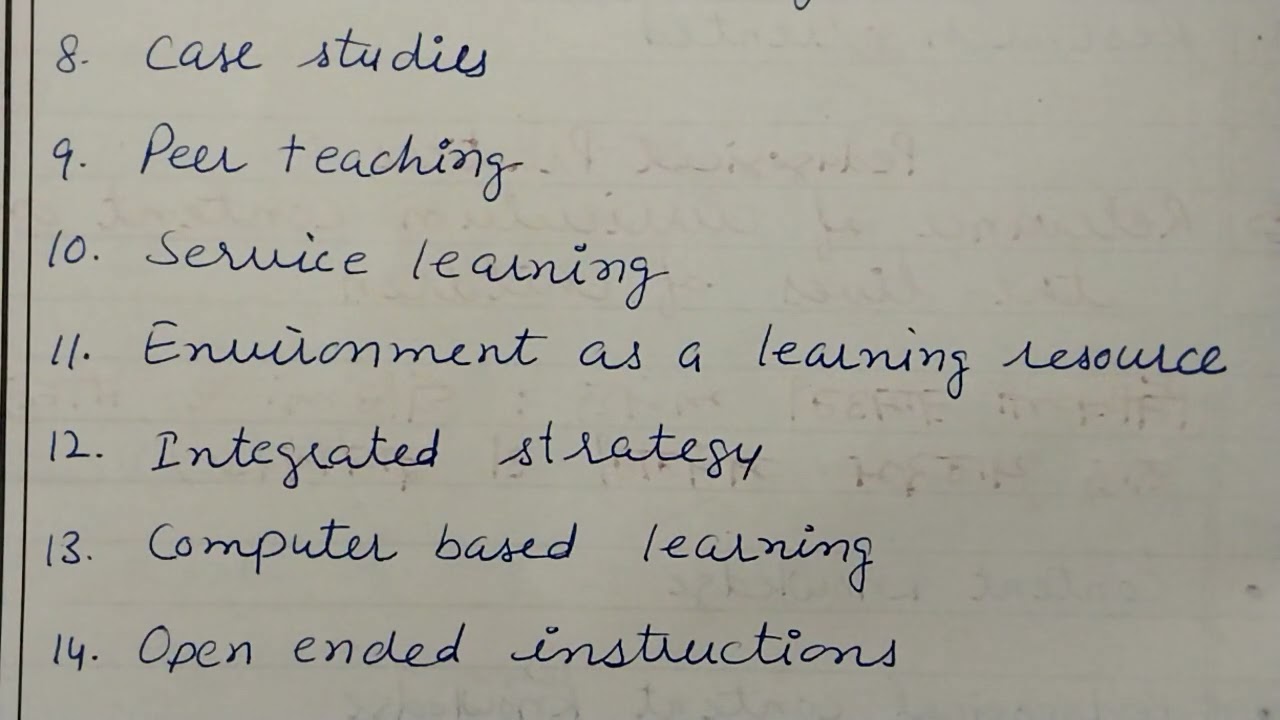 8. Case studies
9. Peer teaching
10. Service learning
11. Environment as a learning resource
12. Integrated strategy
13. Computer based learning
14. Open ended instructions